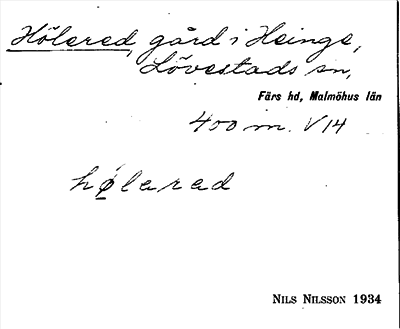 Hölered, gård i Heinge,
Lövestads sn,
Färs hd, Malmöhus län
400 m. V 14
hø̱lerad
NILS NILSSON 1934